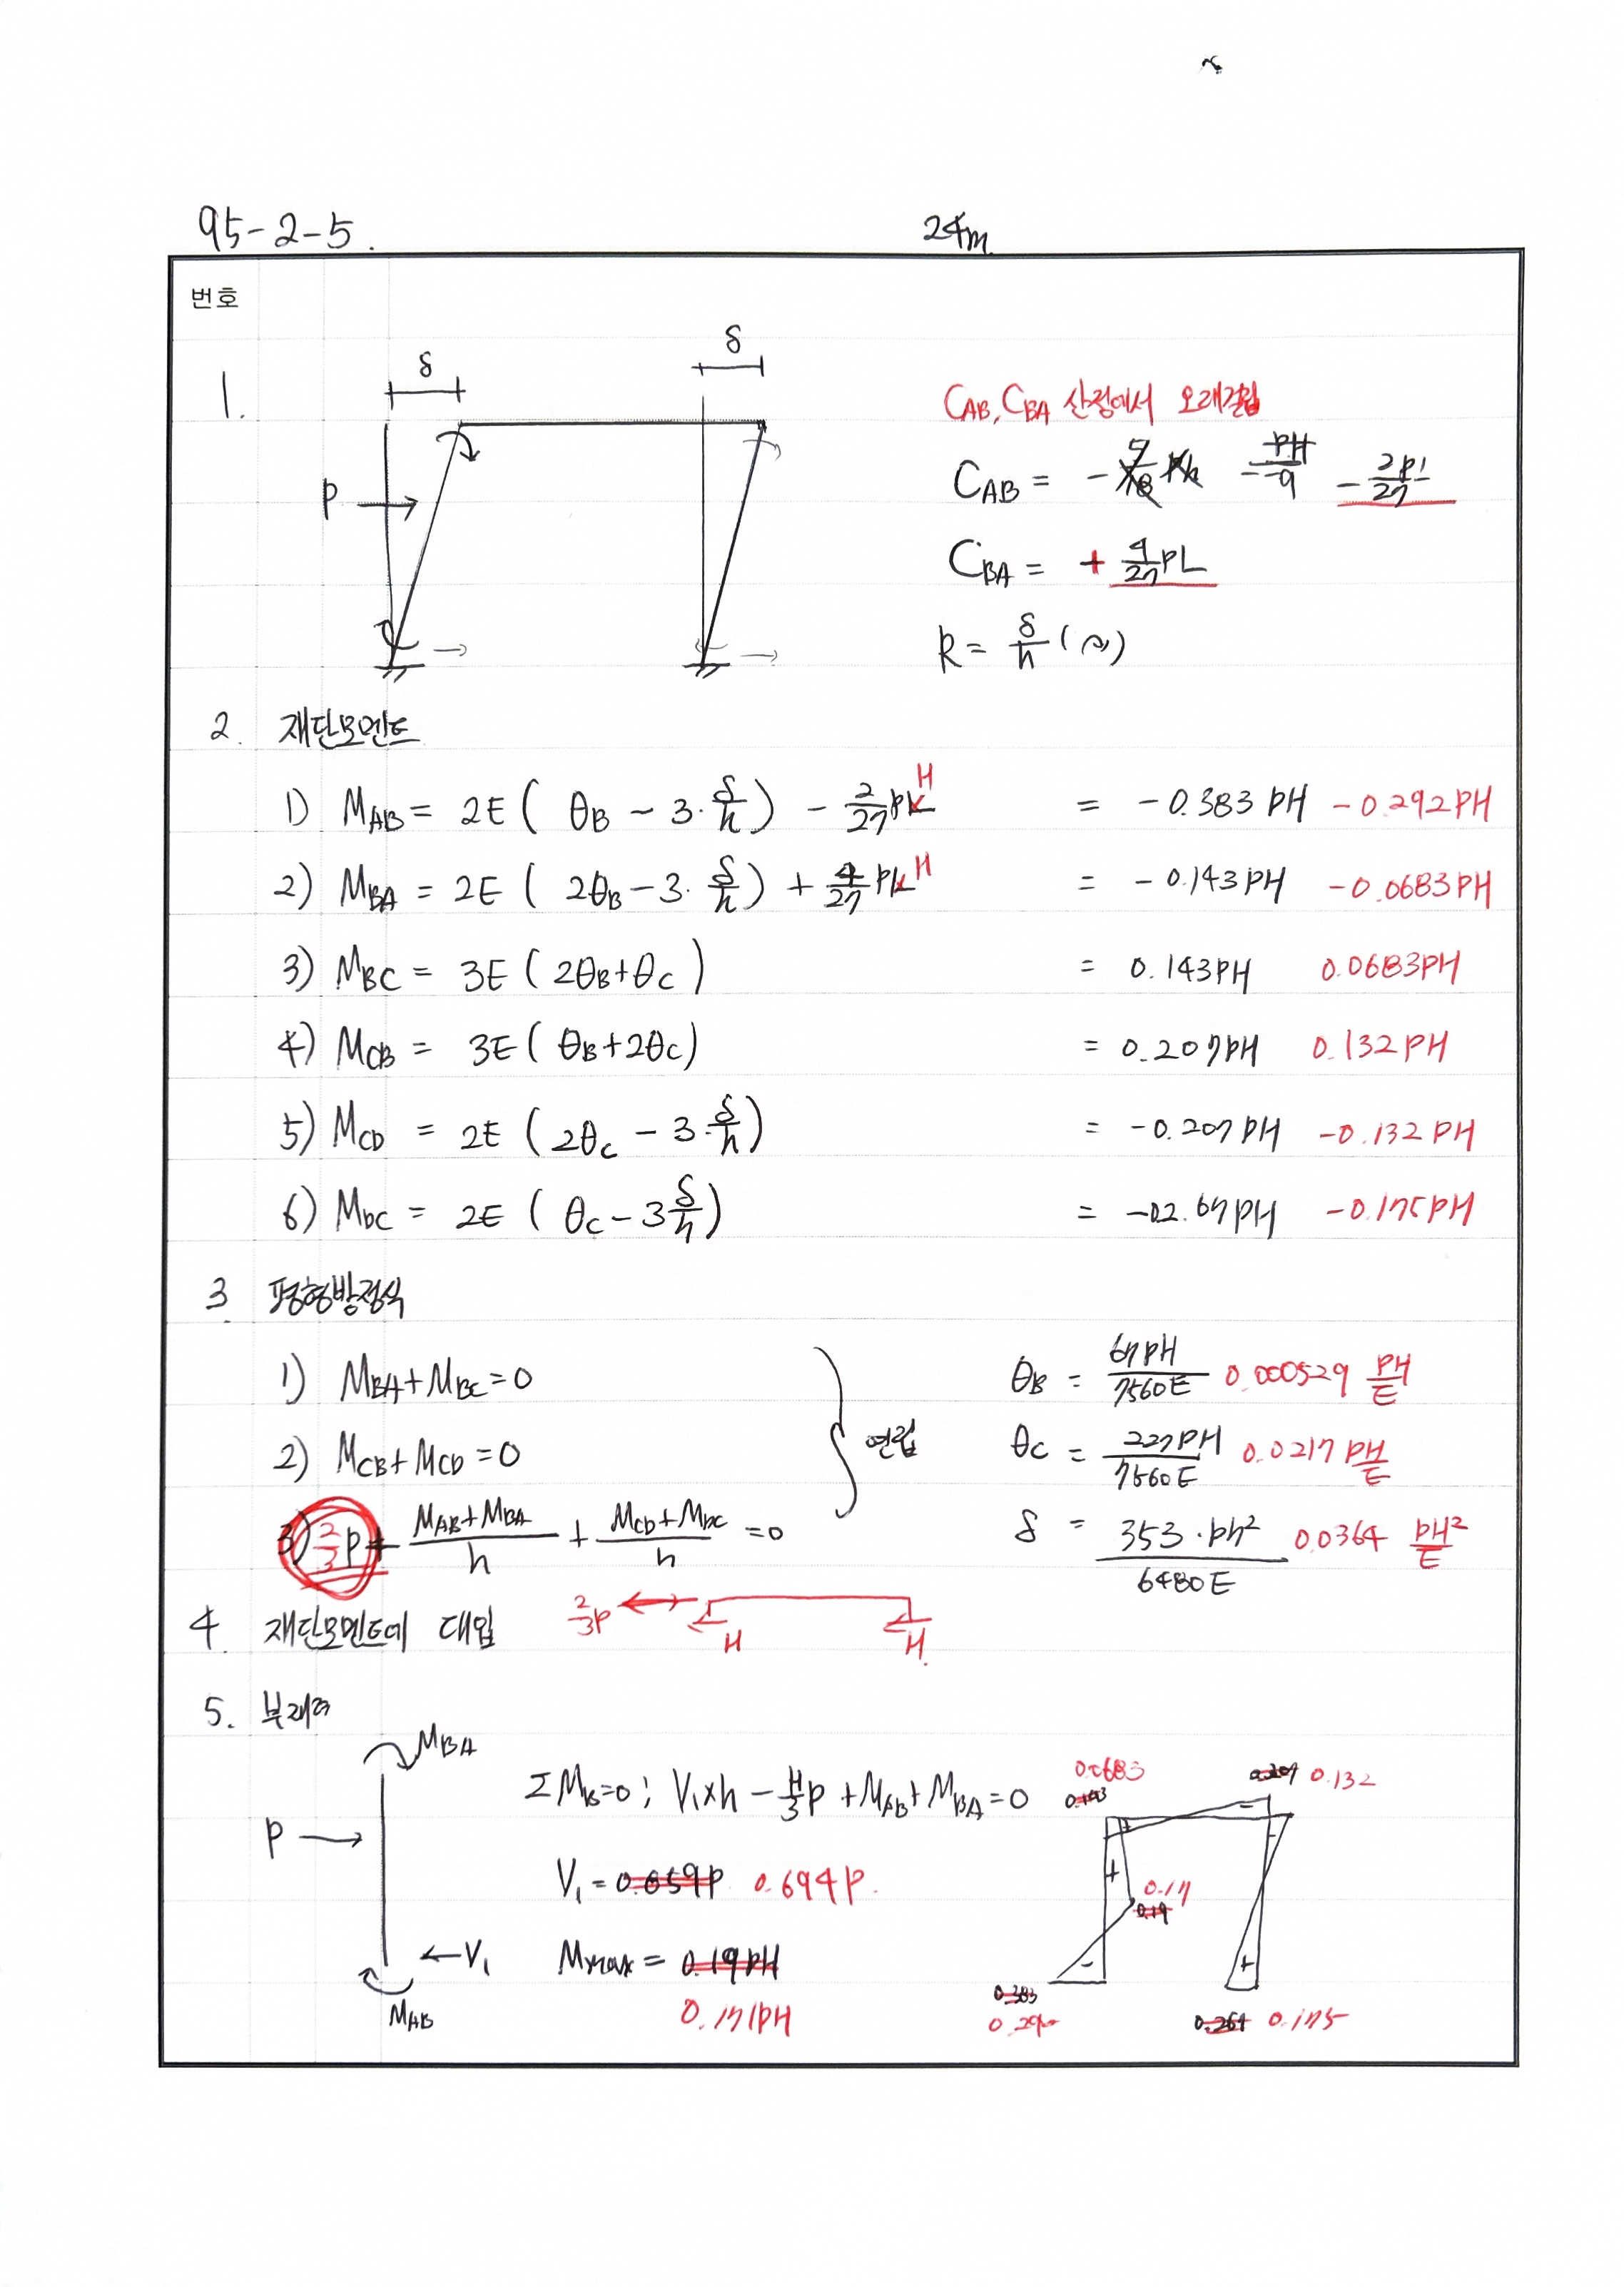 95-2-5.
24m
번호
1.
δ
δ
P
C_AB, C_BA 산정에서 오래걸림
C_AB = - PH/9 - 2PL/27
C_BA = + 4/27 PL
R = δ/h (↷)
2. 재단모멘트
1) M_AB = 2E ( θ_B - 3·δ/h ) - 2/27 PL H = -0.383 PH -0.292PH
2) M_BA = 2E ( 2θ_B - 3·δ/h ) + 4/27 PL H = -0.143PH -0.0683PH
3) M_BC = 3E ( 2θ_B+θ_C ) = 0.143PH 0.0683PH
4) M_CB = 3E ( θ_B+2θ_C) = 0.207PH 0.132PH
5) M_CD = 2E ( 2θ_C - 3·δ/h ) = -0.207PH -0.132PH
6) M_DC = 2E ( θ_C - 3δ/h ) = -02.67PH -0.175PH
3 평형방정식
1) M_BA+M_BC=0
2) M_CB+M_CD=0
3) 2/3 P + (M_AB+M_BA)/h + (M_CD+M_DC)/h = 0
연립
θ_B = 67PH/7560E 0.000529 PH/E
θ_C = 227PH/7560E 0.0217 PH/E
δ = 353·Ph²/6480E 0.0364 PH²/E
4. 재단모멘트에 대입
2/3P
H
H.
5. 부재력
M_BA
P
V₁
M_AB
ΣM_B=0 ; V₁×h - H/3 P + M_AB + M_BA = 0
V₁ = 0.659P 0.694P.
Mmax = 0.19PH
0.171PH
0.0683
0.143
0.207 0.132
0.17
0.19
0.383
0.267 0.175